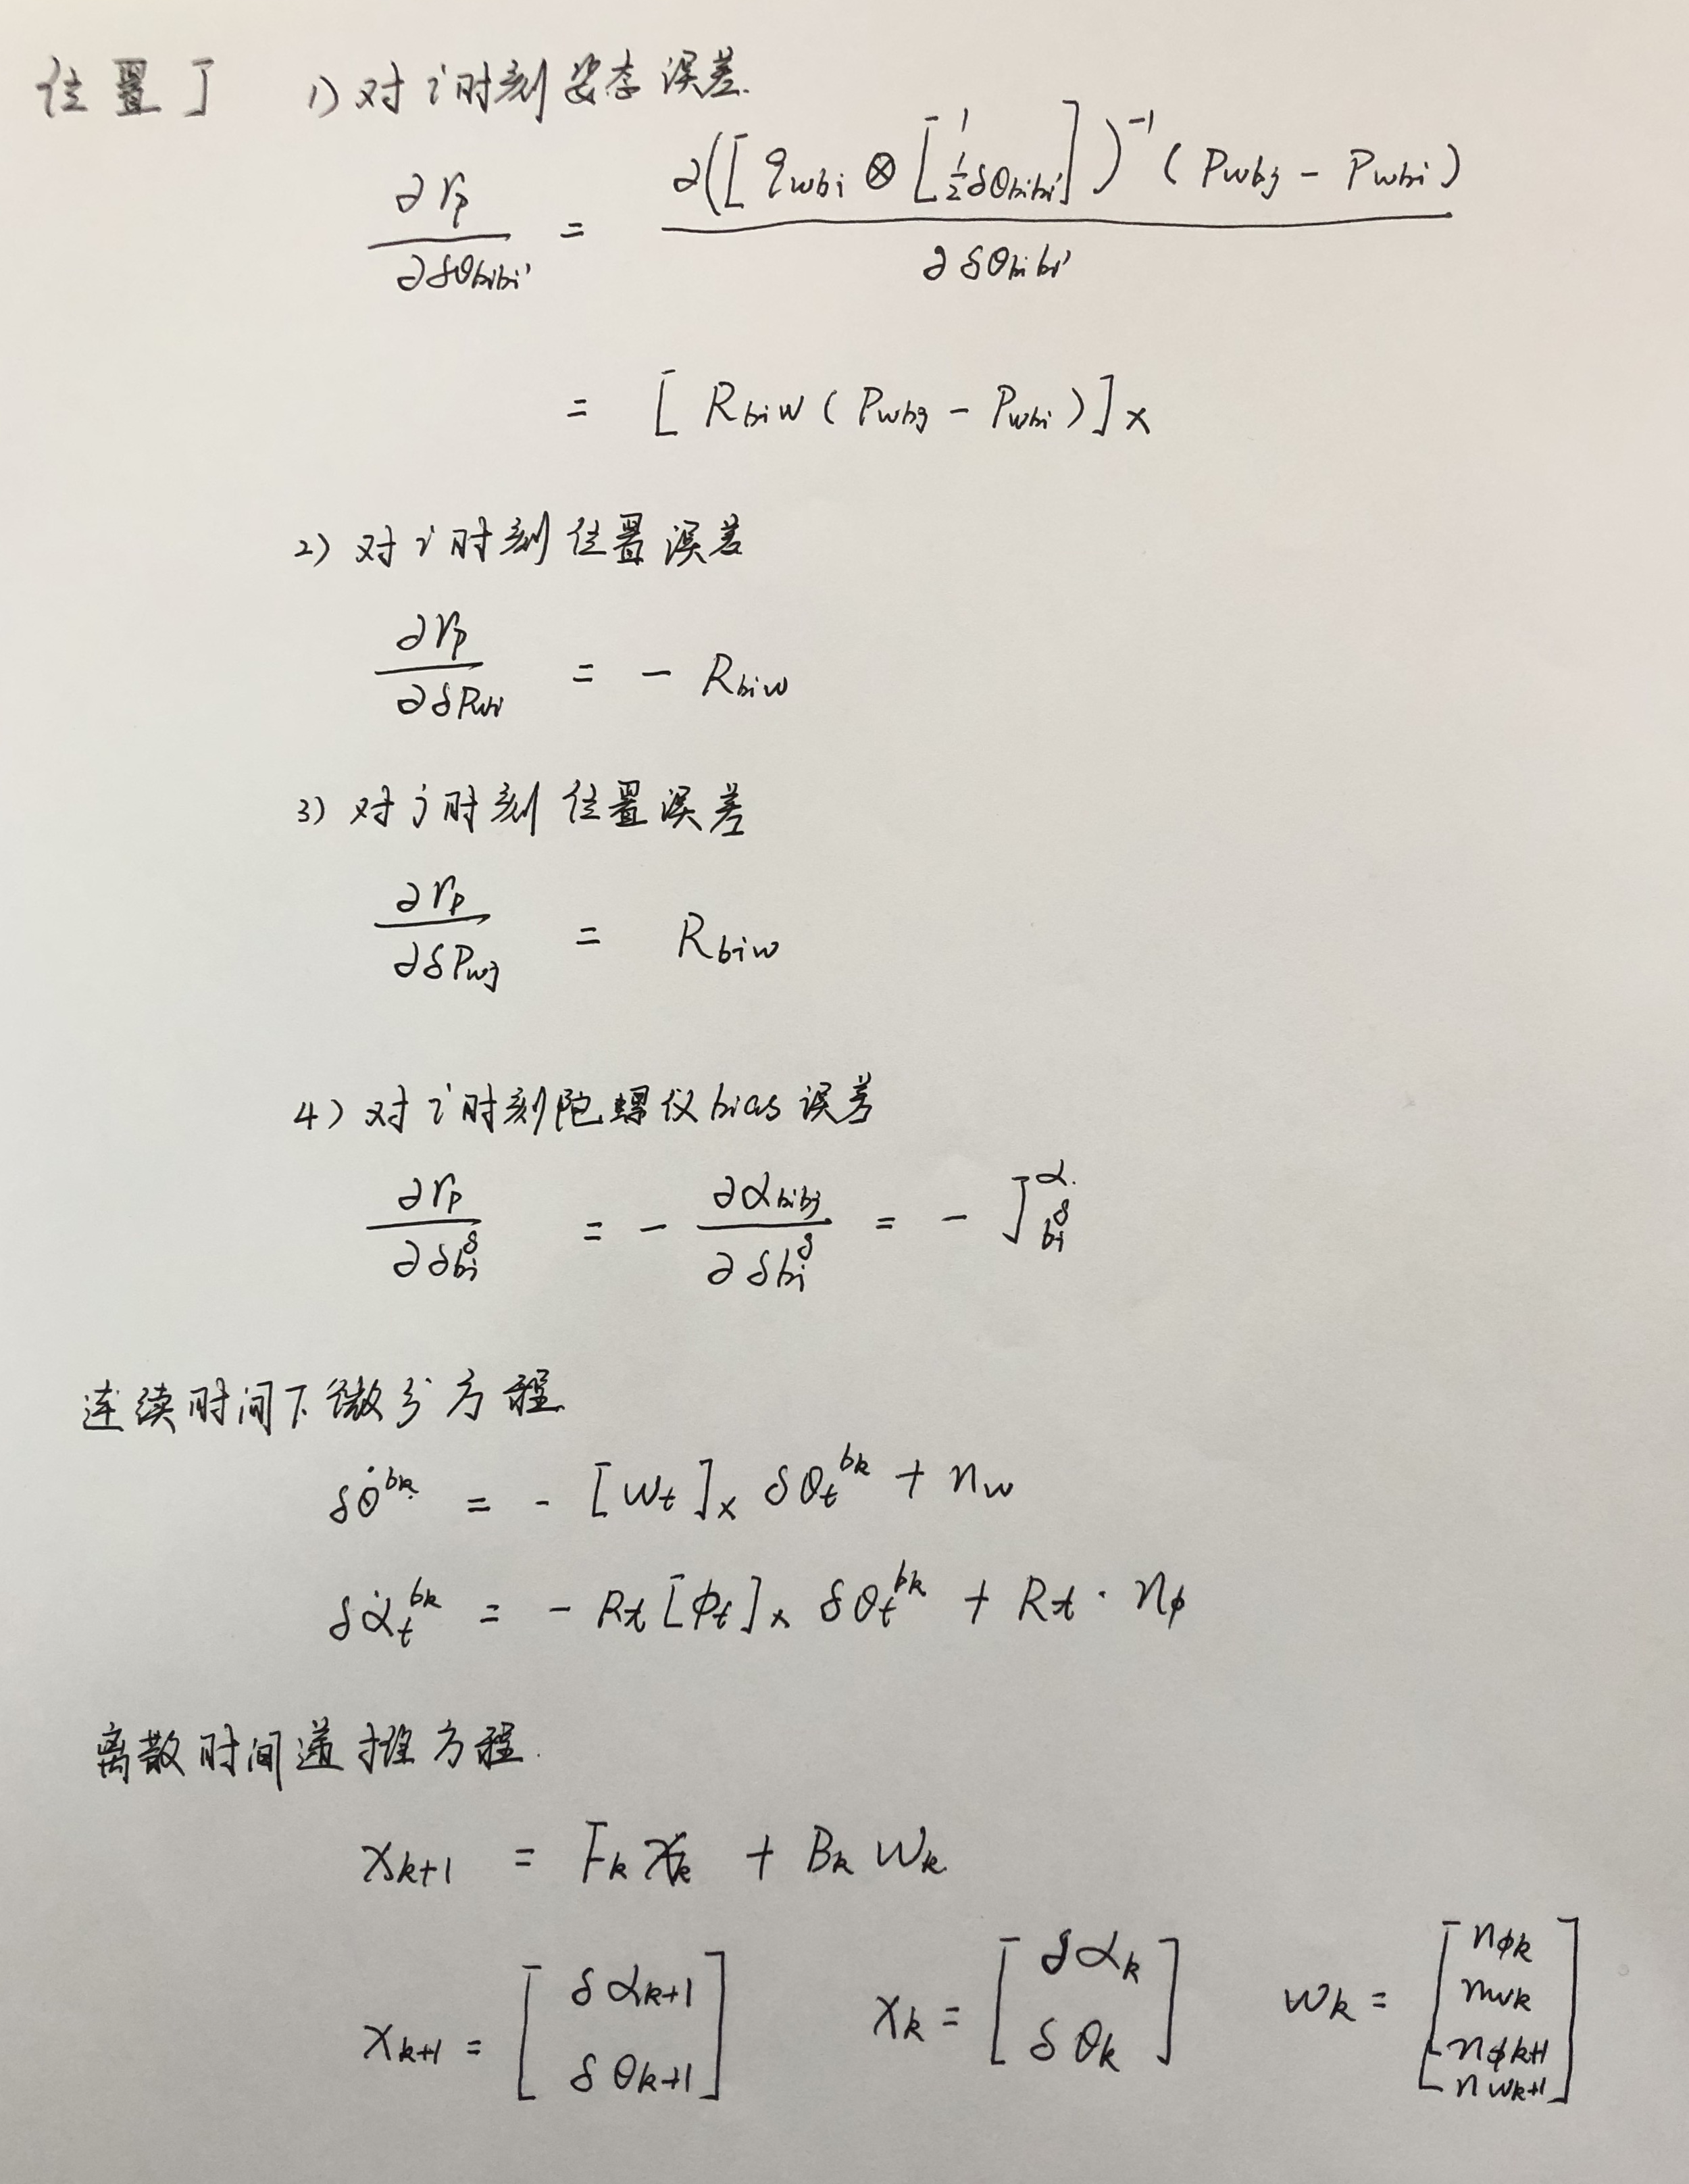 位置J 1) 对i时刻姿态误差.
∂r_p / ∂δθ_{bibi'} = ∂([q_{wbi} ⊗ [1 ½δθ_{bibi'}]])^{-1} (P_{wbj} - P_{wbi}) / ∂δθ_{bibi'}
= [R_{biw} (P_{wbj} - P_{wbi})]_×
2) 对i时刻位置误差
∂r_p / ∂δP_{wi} = - R_{biw}
3) 对j时刻位置误差
∂r_p / ∂δP_{wj} = R_{biw}
4) 对i时刻陀螺仪bias误差
∂r_p / ∂δb_i^g = - ∂α_{bibj} / ∂δb_i^g = - J^α_{b_i^g}
连续时间下微分方程.
δθ̇^{bk} = - [w_t]_× δθ_t^{bk} + n_w
δα̇_t^{bk} = - R_t [ϕ_t]_× δθ_t^{bk} + R_t · n_ϕ
离散时间递推方程.
x_{k+1} = F_k x_k + B_k w_k
x_{k+1} = [δα_{k+1} δθ_{k+1}] x_k = [δα_k δθ_k] w_k = [n_{ϕk} n_{wk} n_{ϕk+1} n_{wk+1}]